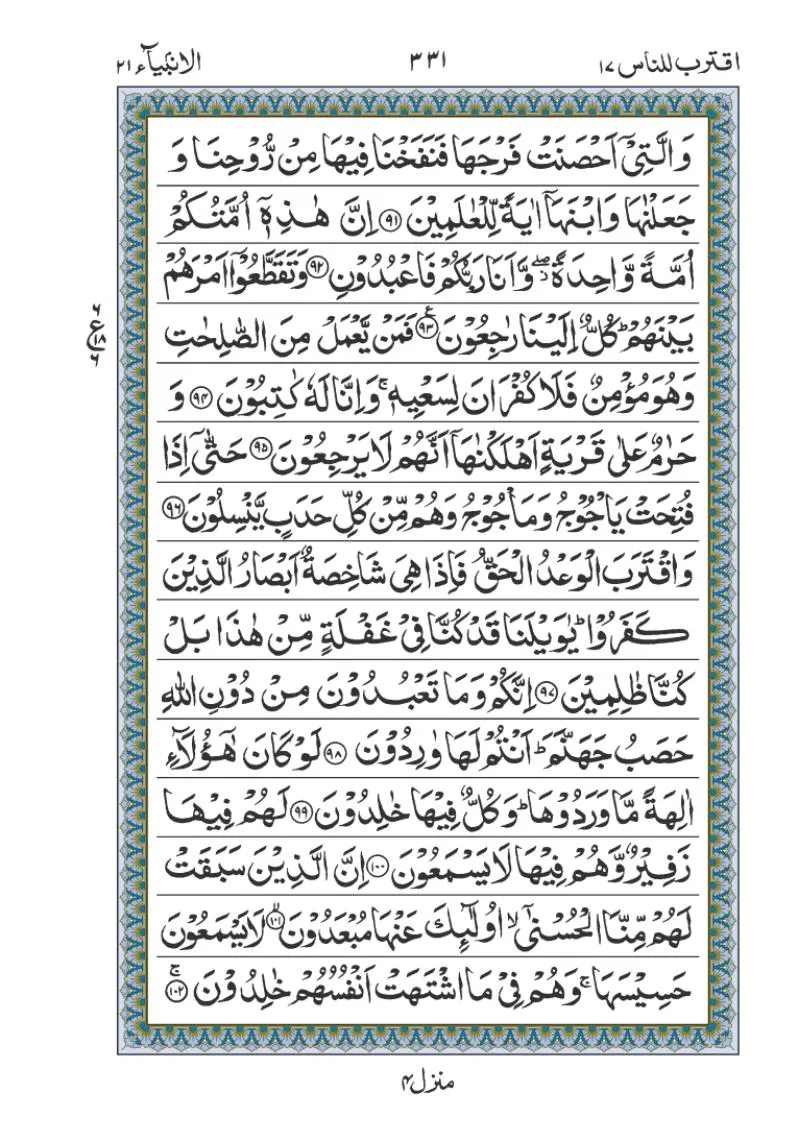 اقترب للناس ۱۷ ۳۳۱ الانبیآء ۲۱
وَالَّتِیْۤ اَحْصَنَتْ فَرْجَهَا فَنَفَخْنَا فِیْهَا مِنْ رُّوْحِنَا وَ
جَعَلْنٰهَا وَابْنَهَاۤ اٰیَةً لِّلْعٰلَمِیْنَ ﴿۹۱﴾ اِنَّ هٰذِهٖۤ اُمَّتُكُمْ
اُمَّةً وَّاحِدَةً ۖ٘ وَّاَنَا رَبُّكُمْ فَاعْبُدُوْنِ ﴿۹۲﴾ وَتَقَطَّعُوْۤا اَمْرَهُمْ
بَیْنَهُمْ ؕ كُلٌّ اِلَیْنَا رٰجِعُوْنَ ﴿۹۳﴾ ع فَمَنْ یَّعْمَلْ مِنَ الصّٰلِحٰتِ
ع ۶ ۱۸ ۶
وَهُوَ مُؤْمِنٌ فَلَا كُفْرَانَ لِسَعْیِهٖ ۚ وَاِنَّا لَهٗ كٰتِبُوْنَ ﴿۹۴﴾ وَ
حَرٰمٌ عَلٰی قَرْیَةٍ اَهْلَكْنٰهَاۤ اَنَّهُمْ لَا یَرْجِعُوْنَ ﴿۹۵﴾ حَتّٰۤی اِذَا
فُتِحَتْ یَاْجُوْجُ وَمَاْجُوْجُ وَهُمْ مِّنْ كُلِّ حَدَبٍ یَّنْسِلُوْنَ ﴿۹۶﴾
وَاقْتَرَبَ الْوَعْدُ الْحَقُّ فَاِذَا هِیَ شَاخِصَةٌ اَبْصَارُ الَّذِیْنَ
كَفَرُوْا ؕ یٰوَیْلَنَا قَدْ كُنَّا فِیْ غَفْلَةٍ مِّنْ هٰذَا بَلْ
كُنَّا ظٰلِمِیْنَ ﴿۹۷﴾ اِنَّكُمْ وَمَا تَعْبُدُوْنَ مِنْ دُوْنِ اللّٰهِ
حَصَبُ جَهَنَّمَ ؕ اَنْتُمْ لَهَا وٰرِدُوْنَ ﴿۹۸﴾ لَوْ كَانَ هٰۤؤُلَآءِ
اٰلِهَةً مَّا وَرَدُوْهَا ؕ وَكُلٌّ فِیْهَا خٰلِدُوْنَ ﴿۹۹﴾ لَهُمْ فِیْهَا
زَفِیْرٌ وَّهُمْ فِیْهَا لَا یَسْمَعُوْنَ ﴿۱۰۰﴾ اِنَّ الَّذِیْنَ سَبَقَتْ
لَهُمْ مِّنَّا الْحُسْنٰۤی ۙ اُولٰٓئِكَ عَنْهَا مُبْعَدُوْنَ ﴿۱۰۱﴾ۙ لَا یَسْمَعُوْنَ
حَسِیْسَهَا ۚ وَهُمْ فِیْ مَا اشْتَهَتْ اَنْفُسُهُمْ خٰلِدُوْنَ ﴿۱۰۲﴾ۚ
منزل ۴